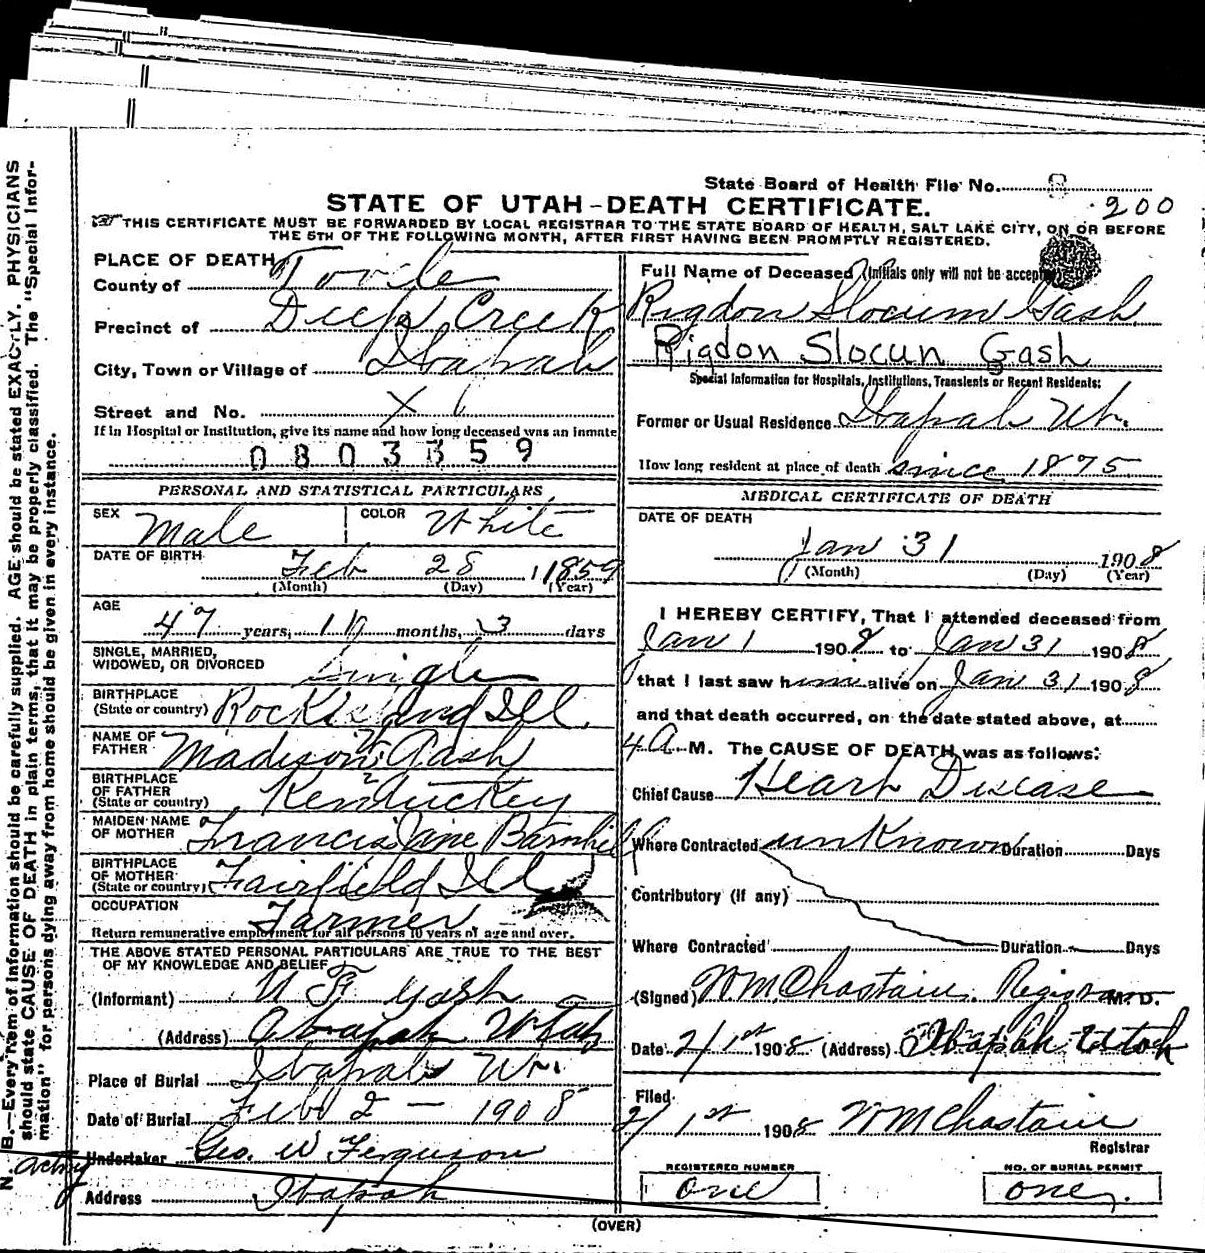 State Board of Health File No. 8
200
STATE OF UTAH-DEATH CERTIFICATE.
THIS CERTIFICATE MUST BE FORWARDED BY LOCAL REGISTRAR TO THE STATE BOARD OF HEALTH, SALT LAKE CITY, ON OR BEFORE
THE 5TH OF THE FOLLOWING MONTH, AFTER FIRST HAVING BEEN PROMPTLY REGISTERED.
PLACE OF DEATH
County of Tooele
Precinct of Deep Creek
City, Town or Village of Ibapah
Street and No. X
If in Hospital or Institution, give its name and how long deceased was an inmate
0803359
PERSONAL AND STATISTICAL PARTICULARS
SEX Male COLOR White
DATE OF BIRTH Feb 28 1859
(Month) (Day) (Year)
AGE
47 years, 10 months, 3 days
SINGLE, MARRIED,
WIDOWED, OR DIVORCED Single
BIRTHPLACE
(State or country) Rock Island Ill
NAME OF
FATHER Madison Gash
BIRTHPLACE
OF FATHER
(State or country) Kentuckey
MAIDEN NAME
OF MOTHER Francis Jane Barnhill
BIRTHPLACE
OF MOTHER
(State or country) Fairfield Ill
OCCUPATION Farmer
Return remunerative employment for all persons 10 years of age and over.
THE ABOVE STATED PERSONAL PARTICULARS ARE TRUE TO THE BEST
OF MY KNOWLEDGE AND BELIEF
(Informant) W F Gash
(Address) Ibapah Utah
Place of Burial Ibapah Ut.
Date of Burial Feb 2 - 1908
Undertaker Geo. W Ferguson
acting
Address Ibapah
Full Name of Deceased (Initials only will not be accep
Rigdon Slocum Gash
Rigdon Slocun Gash
Special Information for Hospitals, Institutions, Transients or Recent Residents:
Former or Usual Residence Ibapah Ut.
How long resident at place of death since 1875
MEDICAL CERTIFICATE OF DEATH
DATE OF DEATH
Jan 31 1908
(Month) (Day) (Year)
I HEREBY CERTIFY, That I attended deceased from
Jan 1 1908 to Jan 31 1908
that I last saw him alive on Jan 31 1908
and that death occurred, on the date stated above, at
4 A M. The CAUSE OF DEATH was as follows:
Chief Cause Heart Disease
Where Contracted unknown Duration Days
Contributory (if any)
Where Contracted Duration Days
(Signed) WM Chastain. Registrar M. D.
Date 2/1st 1908 (Address) Ibapah Utah
Filed
2/1st 1908 WM Chastain
Registrar
REGISTERED NUMBER
one
NO. OF BURIAL PERMIT
one.
(OVER)
N. B.—Every item of information should be carefully supplied. AGE should be stated EXACTLY. PHYSICIANS
should state CAUSE OF DEATH in plain terms, that it may be properly classified. The "Special Infor-
mation" for persons dying away from home should be given in every instance.